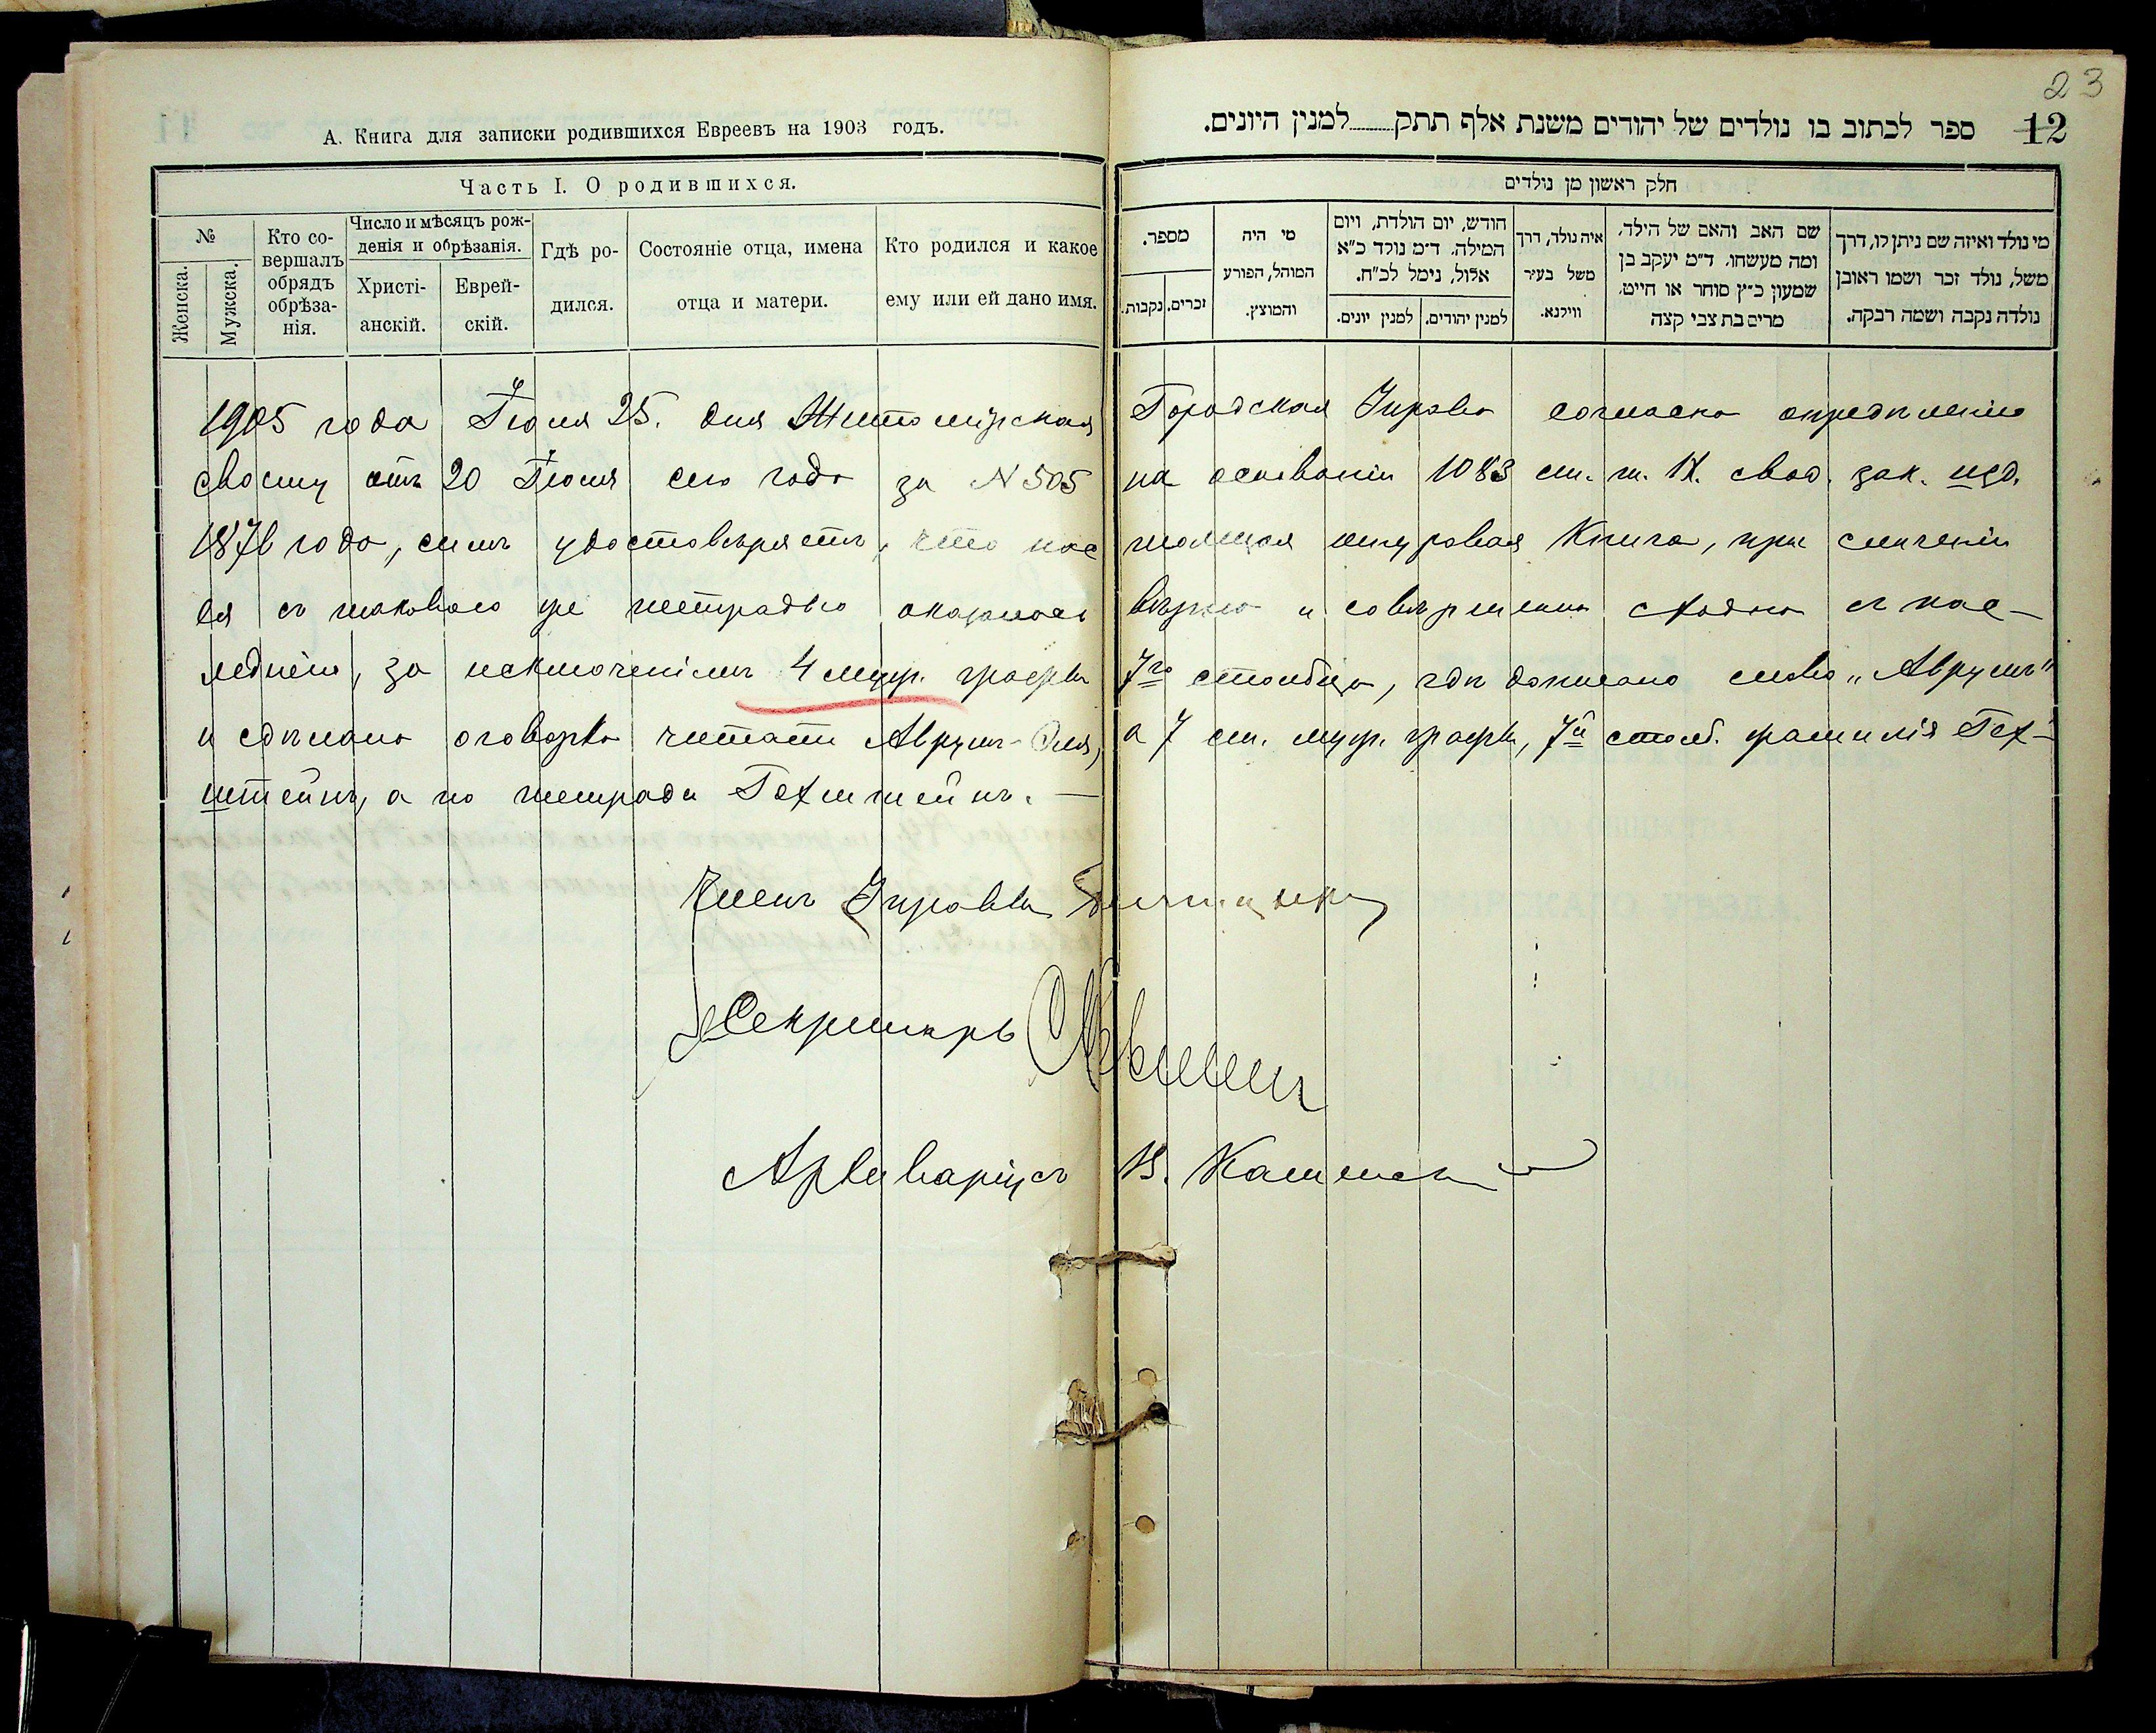 23
А. Книга для записки родившихся Евреевъ на 1903 годъ.
12 ספר לכתוב בו נולדים של יהודים משנת אלף תתק למנין היונים.
Часть I. О родившихся.
№
Женска.
Мужска.
Кто со-
вершалъ
обрядъ
обрѣза-
нія.
Число и мѣсяцъ рож-
денія и обрѣзанія.
Христі-
анскій.
Еврей-
скій.
Гдѣ ро-
дился.
Состояніе отца, имена
отца и матери.
Кто родился и какое
ему или ей дано имя.
חלק ראשון מן נולדים
מי נולד ואיזה שם ניתן לו, דרך
משל, נולד זכר ושמו ראובן
נולדה נקבה ושמה רבקה.
שם האב והאם של הילד,
ומה מעשהו. ד״מ יעקב בן
שמעון כ״ץ סוחר או חייט.
מרים בת צבי קצה
איה נולד, דרך
משל בעיר
ווילנא.
חודש, יום הולדת, ויום
המילה. ד״מ נולד כ״א
אלול, נימל לכ״ח.
למנין יהודים.
למנין יונים.
מי היה
המוהל, הפורע
והמוצץ.
מספר.
זכרים.
נקבות.
1905 года Іюля 25. дня Житомірская Городская Управа согласно опредѣленію
своему отъ 20 Іюля сего года за N 505 на основаніи 1083 ст. т. IX. свод. зак. изд.
1876 года, симъ удостовѣряетъ, что нас тоящая шнуровая Книга, при сличеніи
ея съ таковою же тетрадью оказалась вѣрно и совершенно сходно съ пос-
леднею, за исключеніемъ 4 муж. графы 7го столбца, гдѣ дописано слово „Аврумъ"
и сдѣлано оговорка читать Аврумъ- а 7 ст. муж. графы, 7й столб. фамилія Гех-
штейнъ, а по тетради Гехтштейнъ. —
Членъ Управы
Секретарь
Архиваріусъ В. Каменск